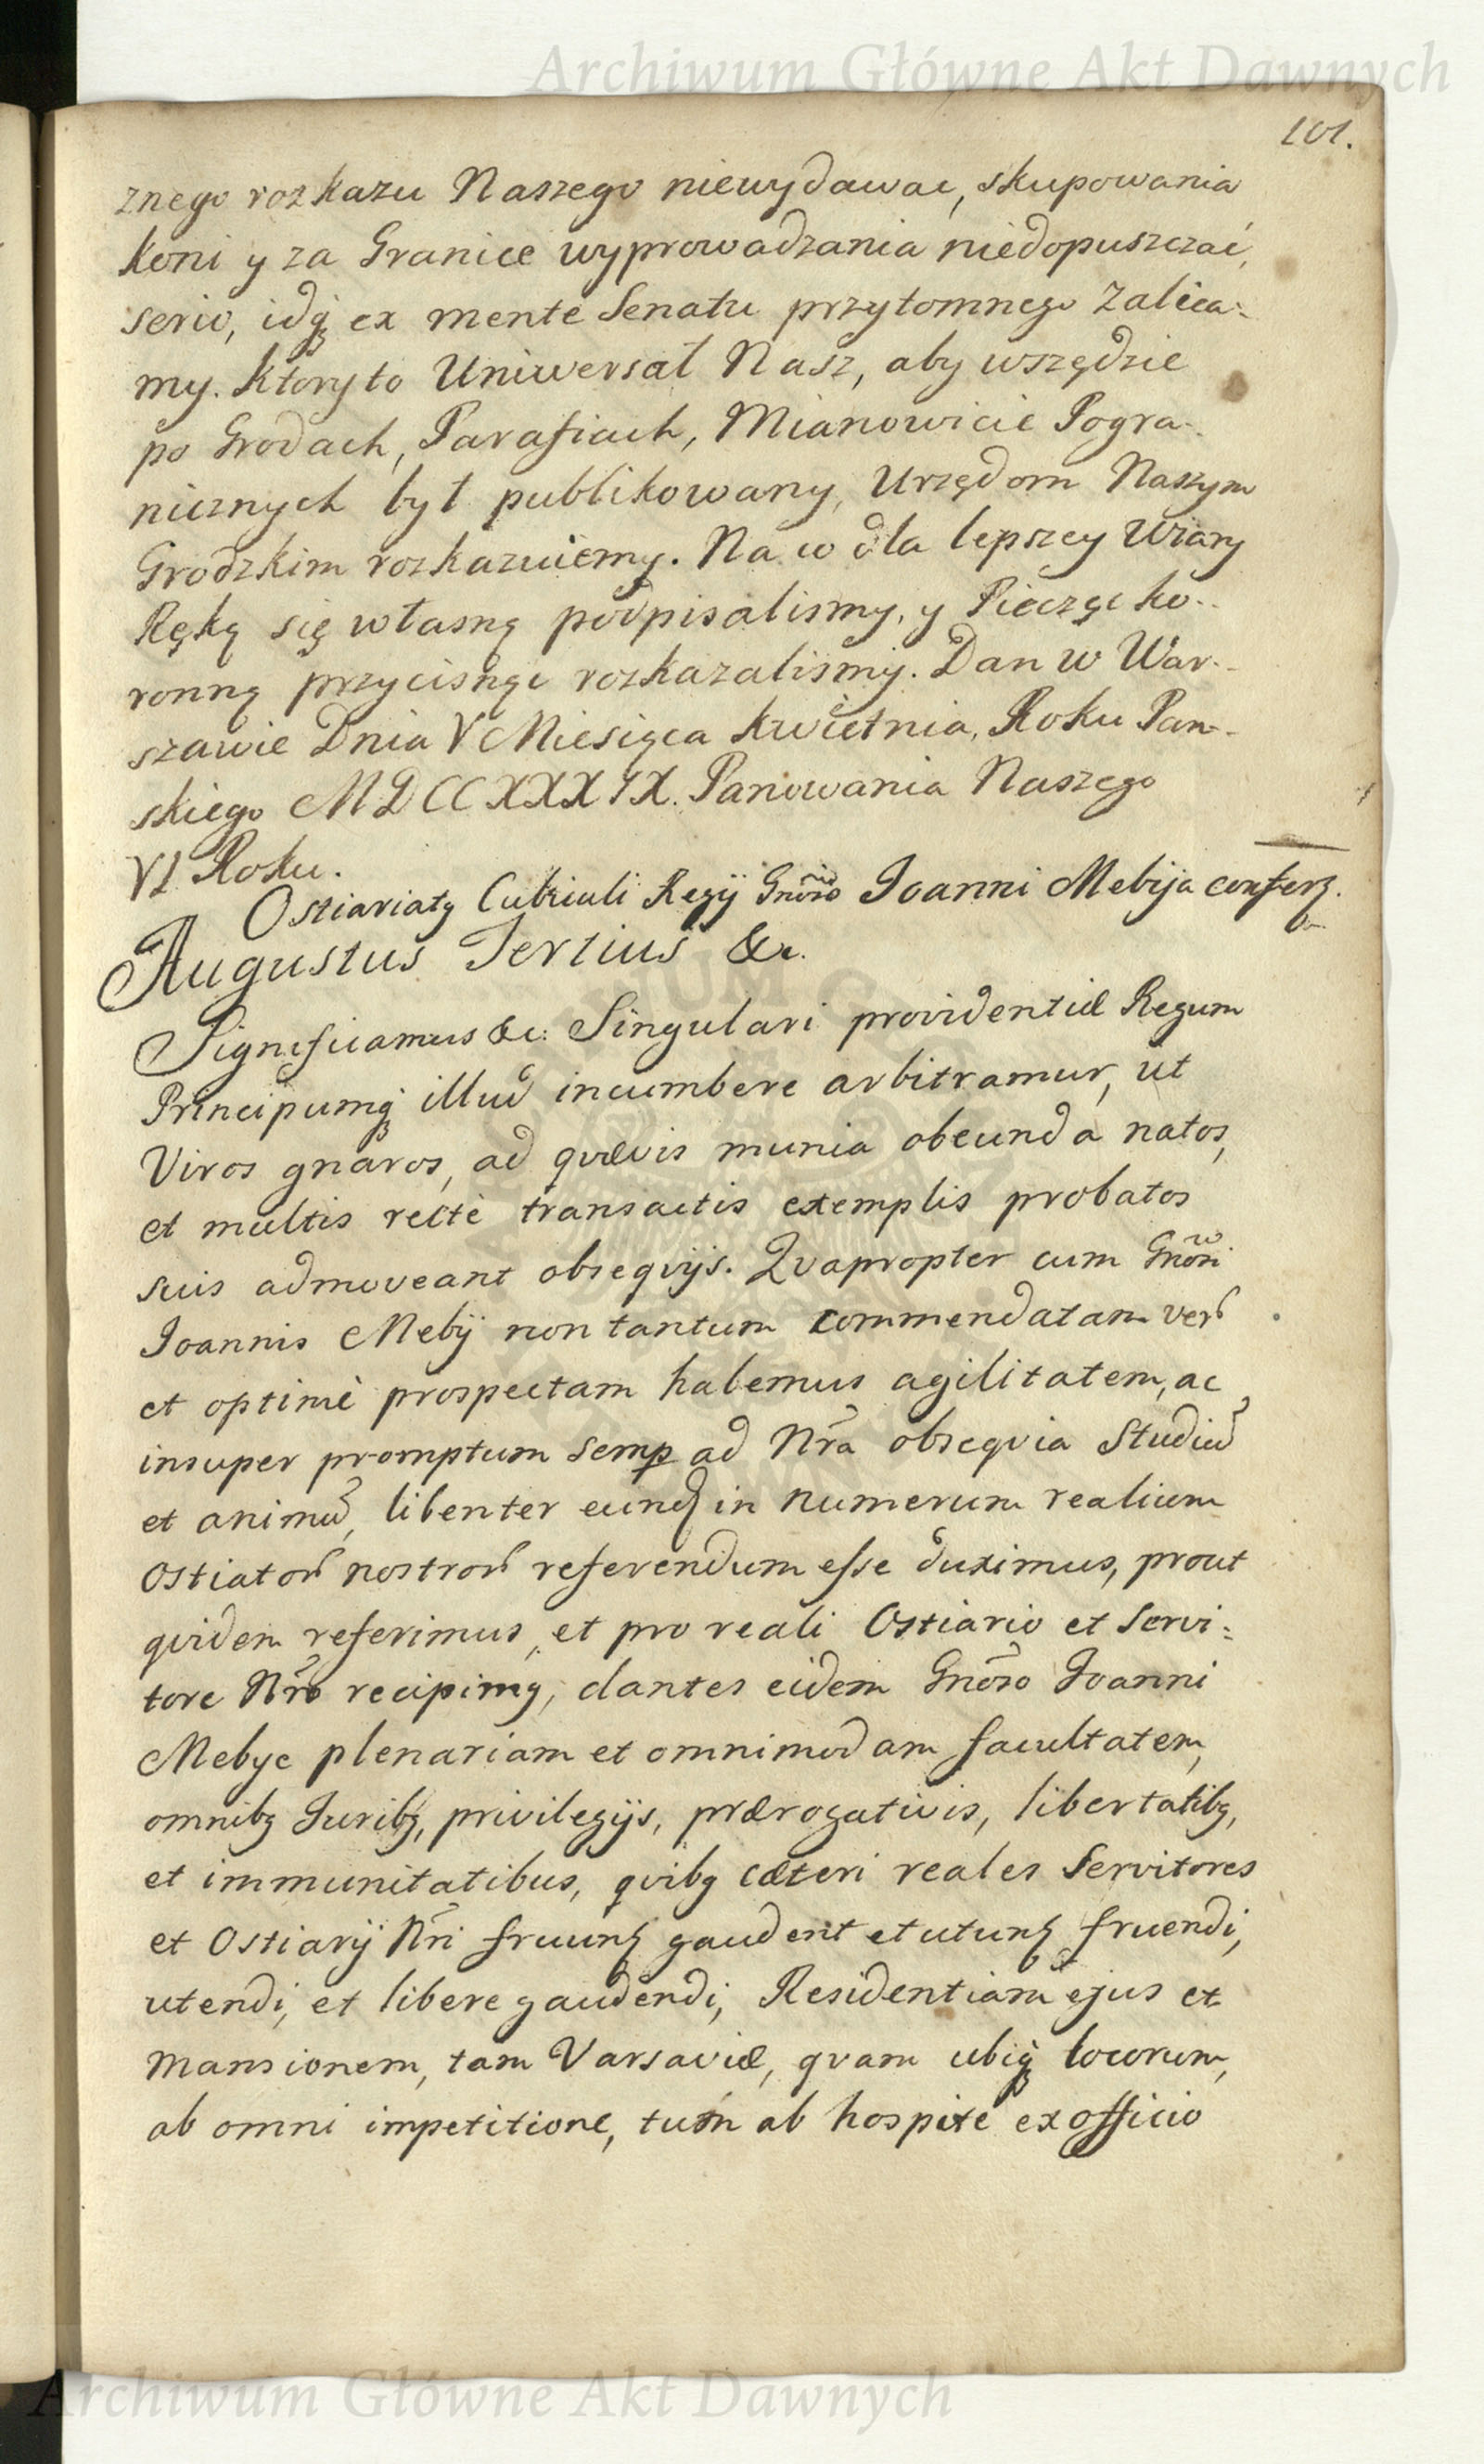 Archiwum Główne Akt Dawnych
101.
znego rozkazu Naszego niewydawac, skupowania
koni y za Granice wyprowadzania niedopuszczać,
serio, idq́; ex mente Senatu przytomnego Zaleca:
my. Ktory to Uniwersał Nasz, aby wszędzie
po Grodach, Parafiach, Mianowicie Pogra-
nicznych był publikowany, Urzędom Naszym
Grodzkim rozkazuiemy. Na co dla lepszey Wiary
Ręką się własną podpisalismy, y Pieczęc ko-
ronną przycisnąc rozkazalismy. Dan w War-
szawie Dnia V Miesiąca Kwietnia, Roku Pan-
skiego MDCCXXXIX. Panowania Naszego
VI Roku.
Ostiariatq Cubiculi Regij Gnõso Joanni Mebija conferꝫ.
Augustus Tertius &c.
Significamus &c: Singulari providentiæ Regum
Principumq́; illud incumbere arbitramur, ut
Viros gnaros, ad quævis munia obeunda natos,
et multis rectè transactis exemplis probatos
suis admoveant obsequijs. Quapropter cum Gnõsi
Joannis Mebij non tantum commendatam verũ
et optimè prospectam habemus agilitatem, ac
insuper promptum semꝑ ad Nr̃a obsequia Studiũ
et animũ, libenter eundꝫ in numerum realium
Ostiatorũ nostrorũ referendum esse duximus, prout
quidem referimus, et pro reali Ostiario et Servi:
tore Nr̃o recipimꝯ, dantes eidem Gnõso Joanni
Mebye plenariam et omnimodam facultatem,
omnibꝯ Juribꝯ, privilegijs, prærogativis, libertatibꝯ,
et immunitatibus, quibꝯ cæteri reales Servitores
et Ostiarij Nr̃i fruunꝫ gaudent et utunꝫ fruendi,
utendi, et libere gaudendi, Residentiam ejus et
Mansionem, tam Varsaviæ, quam ubiq́; locorum,
ab omni impetitione, tum ab hospite ex officio
Archiwum Główne Akt Dawnych